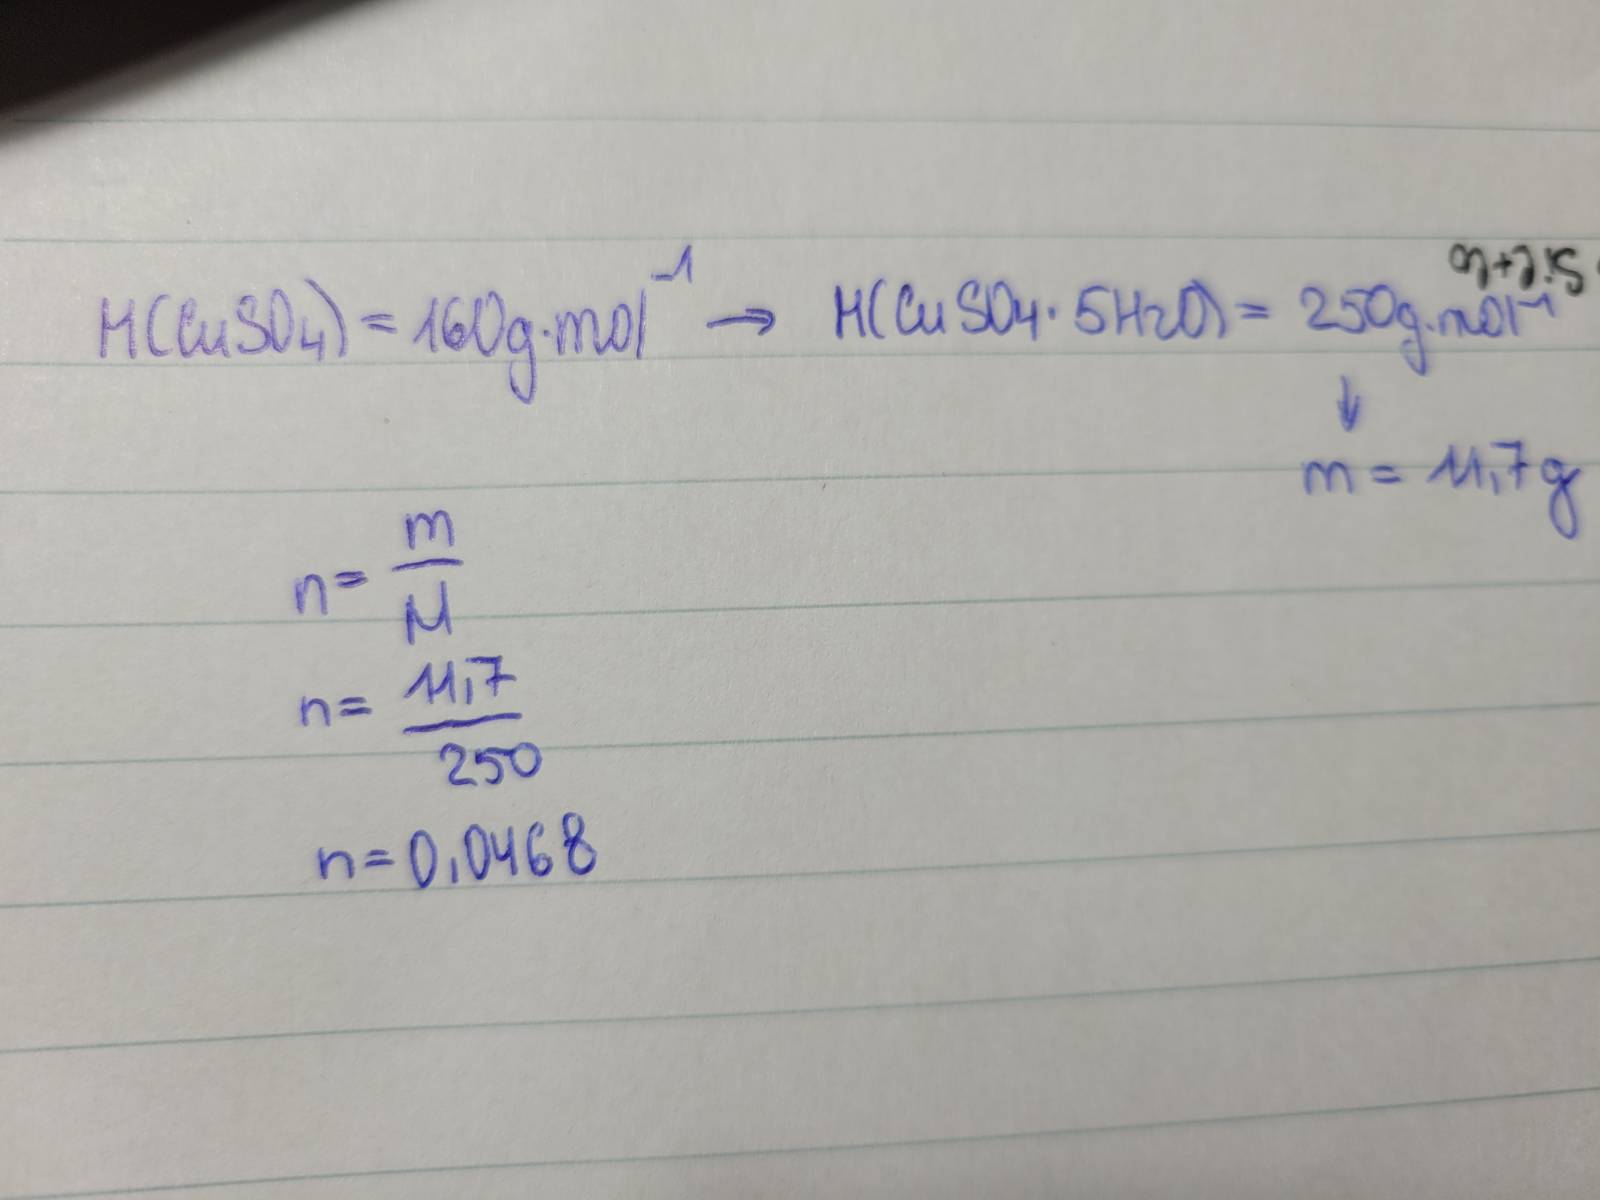 M(CuSO4) = 160g·mol⁻¹ → M(CuSO4·5H2O) = 250g·mol⁻¹
↓
m = 11,7g
n = m/M
n = 11,7/250
n = 0,0468